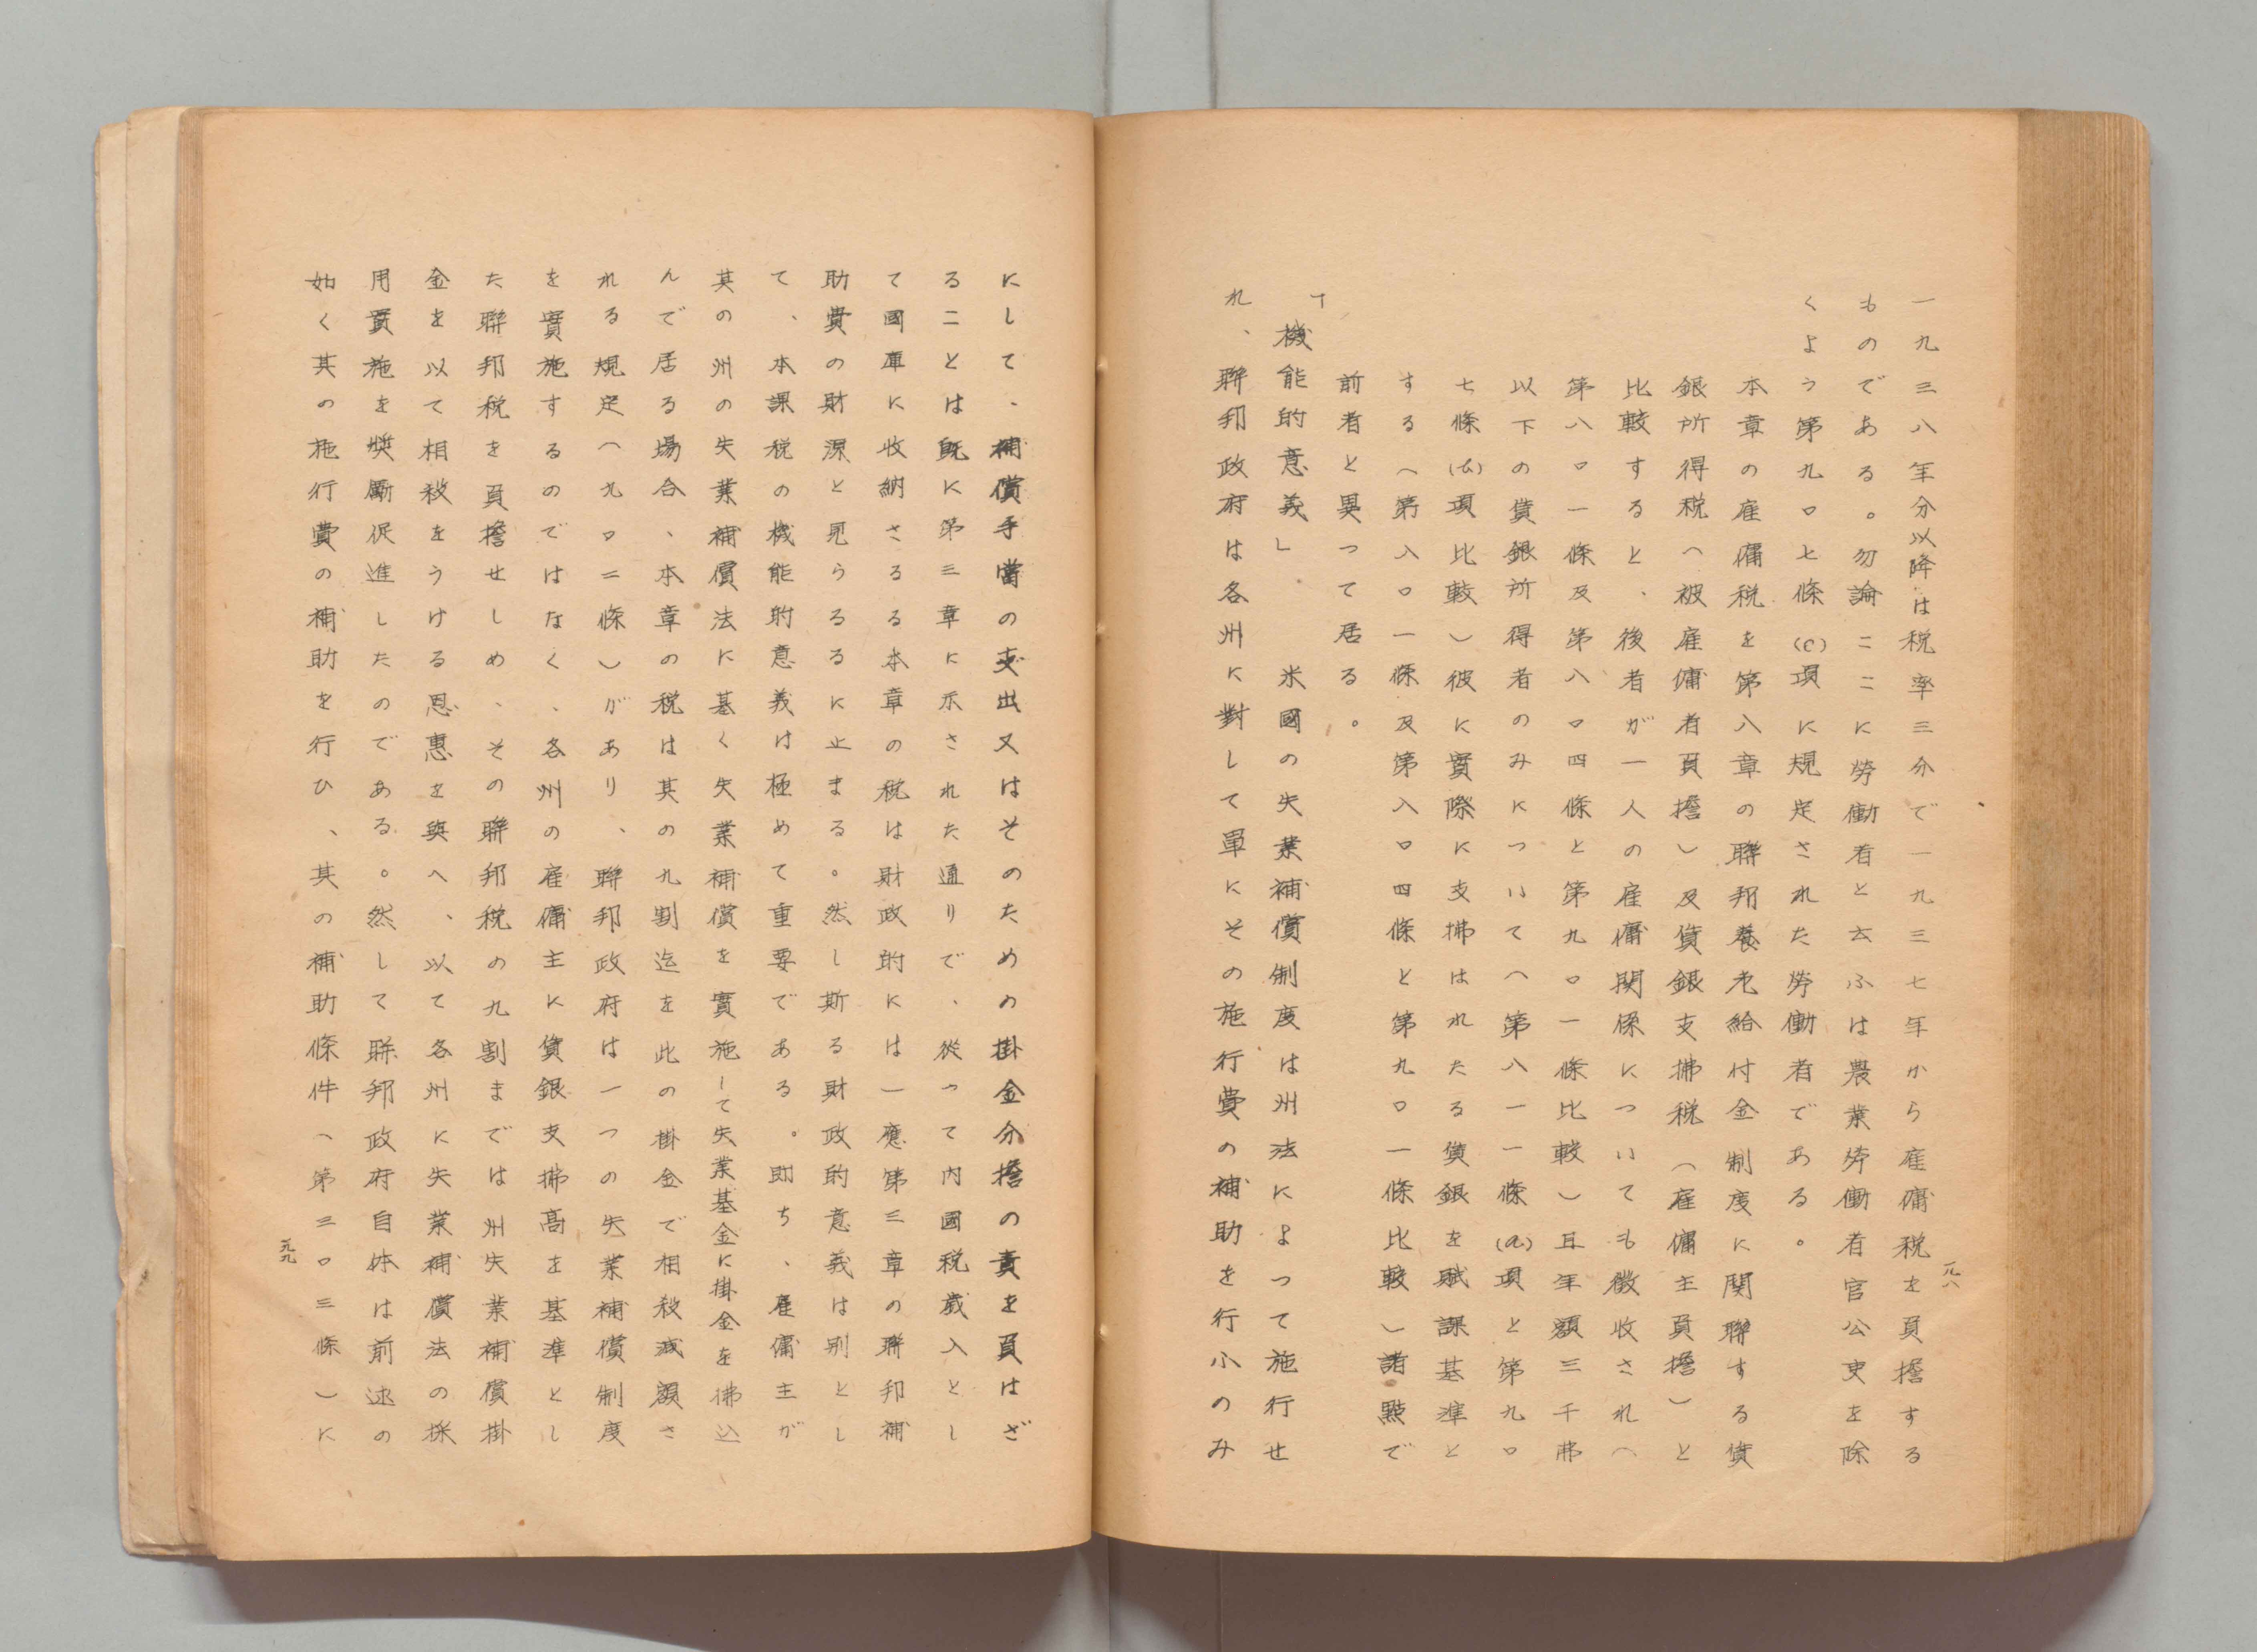 一九三八年分以降は税率三分で一九三七年から雇傭税を負擔する
ものである。勿論ここに勞働者と云ふは農業労働者官公吏を除
くよう第九〇七條(c)項に規定された勞働者である。
本章の雇傭税を第八章の聯邦養老給付金制度に関聯する賃
銀所得税（被雇傭者負擔）及賃銀支拂税（雇傭主負擔）と
比較すると、後者が一人の雇傭関係についても徴收され（
第八〇一條及第八〇四條と第九〇一條比較）且年額三千弗
以下の賃銀所得者のみについて（第八一一條(a)項と第九〇
七條(b)項比較）彼に實際に支拂はれたる賃銀を賦課基準と
する（第八〇一條及第八〇四條と第九〇一條比較）諸點で
前者と異って居る。
「機能的意義」　米國の失業補償制度は州法によって施行せ
れ、聯邦政府は各州に對して單にその施行費の補助を行ふのみ
一九八
にして、補償手當の支出又はそのための掛金分擔の責を負はざ
ることは既に第三章に示された通りで、從って内國税歳入とし
て國庫に收納さるる本章の税は財政的には一應第三章の聯邦補
助費の財源と見らるるに止まる。然し斯る財政的意義は別とし
て、本課税の機能的意義は極めて重要である。即ち、雇傭主が
其の州の失業補償法に基く失業補償を實施して失業基金に掛金を拂込
んで居る場合、本章の税は其の九割迄を此の掛金で相殺減額さ
れる規定（九〇二條）があり、聯邦政府は一つの失業補償制度
を實施するのではなく、各州の雇傭主に賃銀支拂高を基準とし
た聯邦税を負擔せしめ、その聯邦税の九割までは州失業補償掛
金を以て相殺をうける恩惠を與へ、以て各州に失業補償法の採
用實施を獎勵促進したのである。然して聯邦政府自体は前述の
如く其の施行費の補助を行ひ、其の補助條件（第三〇三條）に
一九九